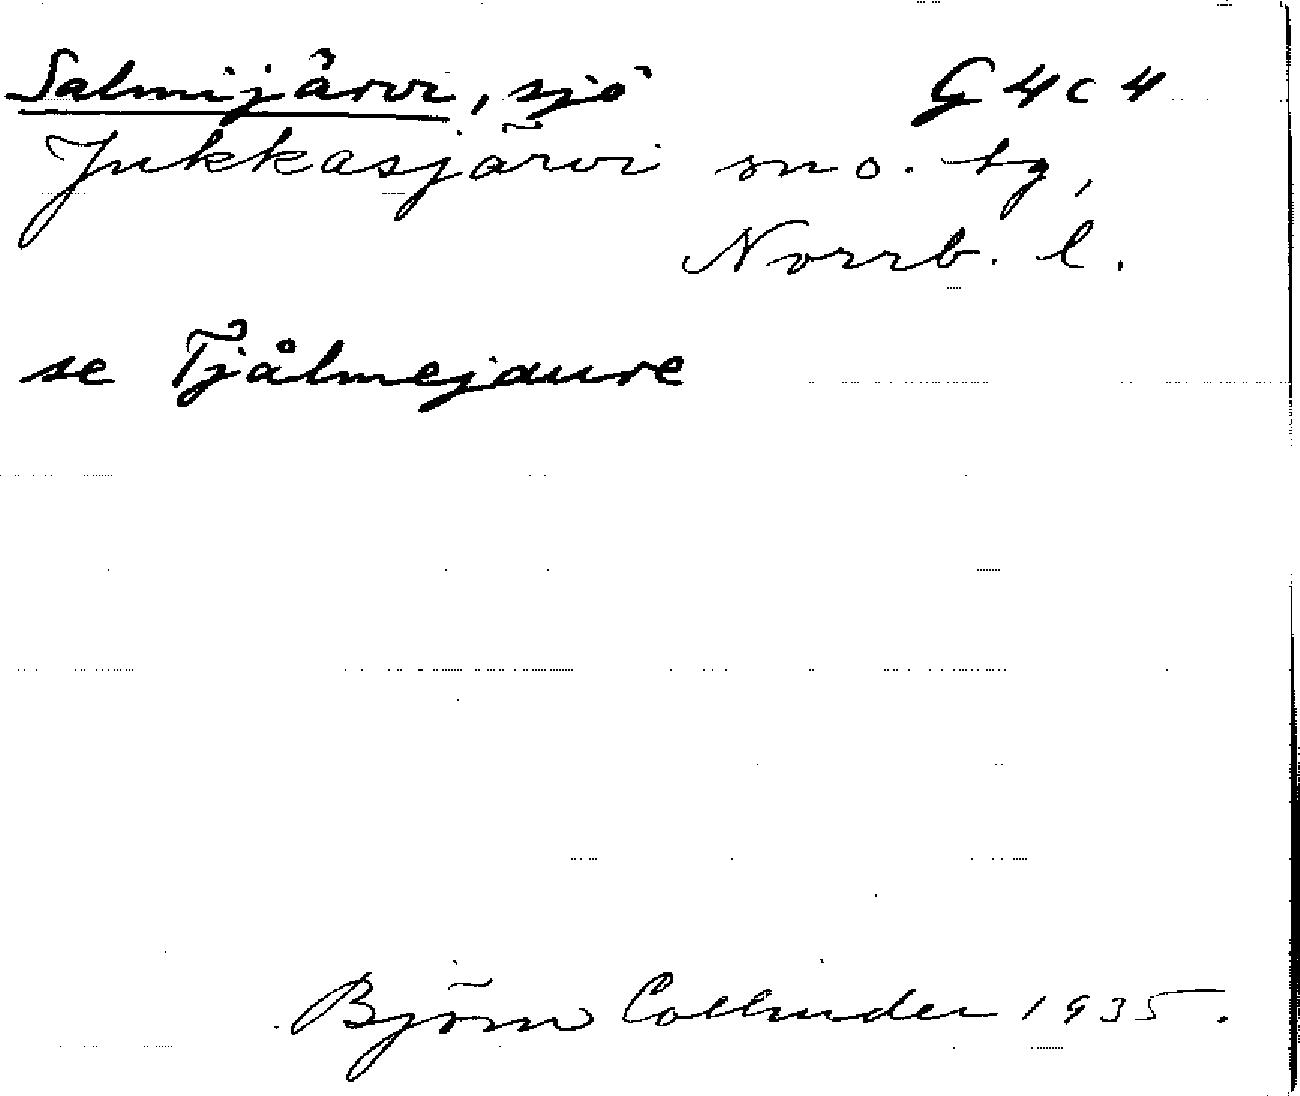 Salmijärvi, sjö G4c4
Jukkasjärvi sn o. tg,
Norrb. l.
se Tjålmejaure
Björn Collinder 1935.